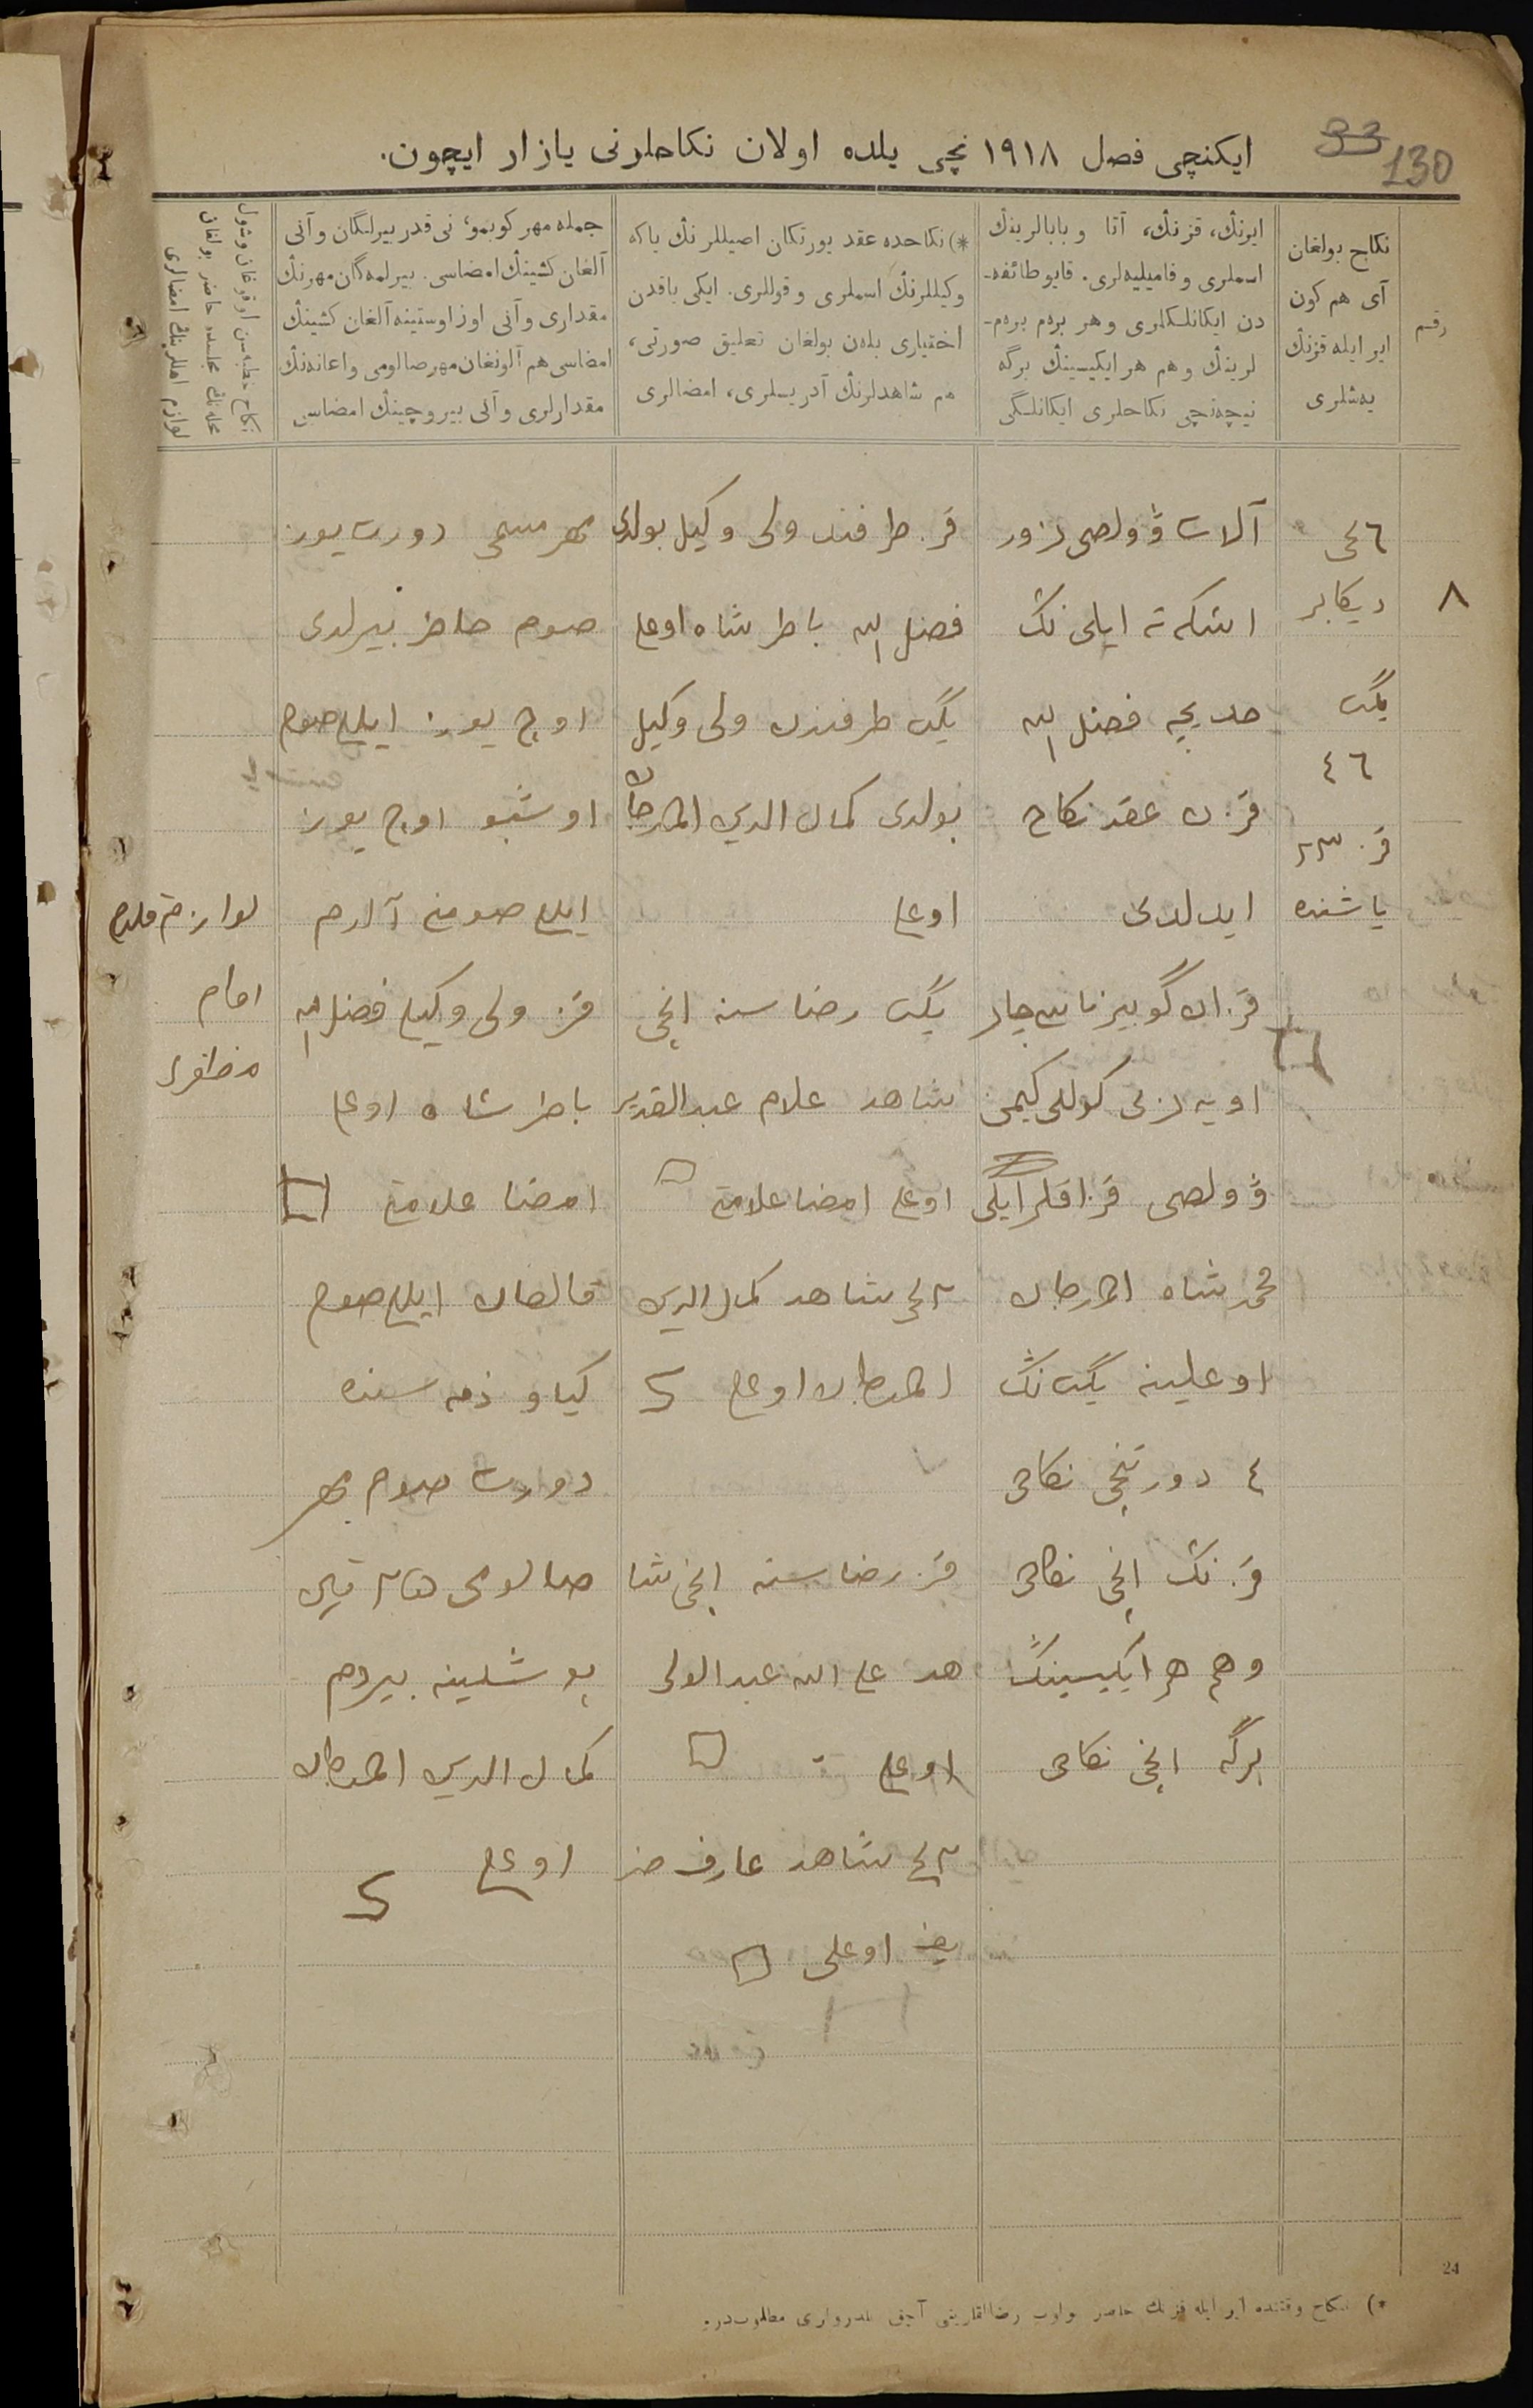 33
130
ایكنچی فصل ١٩١٨ نچی یلده اولان نكاحلرنی یازار ایچون.
رقم
نكاح بولغان
آی هم كون
ایر ایله قزنڭ
یەشلری
ایرنڭ، قزنڭ، آتا و بابالرینڭ
اسملری و فامیلیەلری. قایو طائفه‌-
دن ایكانلكلری و هر برەم برەم-
لرینڭ و هم هر ایكیسینڭ برگه
نیچەنچی نكاحلری ایكانلگی
*) نكاحده عقد یورتكان اصیللرنڭ یاكه
وكیللرنڭ اسملری و قوللری. ایكی یاقدن
اختیاری بلەن بولغان تعلیق صورتی،
هم شاهدلرنڭ آدریسلری، امضالری
جمله مهر كوبمو؛ نی قدر بیرلگان و آنی
آلغان كشینڭ امضاسی. بیرلمەگان مهرنڭ
مقداری و آنی اوز اوستینه آلغان كشینڭ
امضاسی هم آلونغان مهر صالومی و اعانەنڭ
مقدارلری و آنی بیروچینڭ امضاسی
نكاح خطبەسن اوقوغان و شول
مجلسده حاضر بولغان
لوازم اهللرینڭ امضالری
٨
٦ نچی
دیكابر
یگت
٤٦
قز ٢٣
یاشنده
آلات ڤولصی زور
اشكەتە ایلی نڭ
خدیجه فضل الله
قزن عقد نكاح
ایدلدی
قزان گوبیرناسی چار
اویەزنی كوللی كیمی
ڤولصی قزاقلر ایلی
محمدشاه المرجان
اوغلینه یگت نڭ
٤ دورتنچی نكاحی
قز نڭ ١نچی نكاحی
و هم هر ایكیسینڭ
برگه ١نچی نكاحی
قز طرفندن ولی وكیل بولدی
فضل الله باطرشاه اوغلی
یگت طرفندن ولی وكیل
بولدی كمال الدین المرجان
اوغلی
یگت رضاسنه ١نچی
شاهد علام عبدالقدیر
اوغلی امضا علامتی
٢نچی شاهد كمال الدین
المرجان اوغلی
قز رضاسنه ١نچی شا
هد علی الله عبدالولی
اوغلی
٢نچی شاهد عارف
اوغلی
مهر مسمی دورت یوز
صوم حاضر بیرلدی
اوچ یوز ایللی صوم
اوشبو اوچ یوز
ایللی صومنی آلدم
قز ولی وكیلی فضل الله
باطرشاه اوغلی
امضا علامتی
قالغان ایللی صوم
كیاو ذمەسنده
دورت صوم مهر
صالومی
بو شلینه بیردم
كمال الدین المرجان
اوغلی
امام
مظفری
24
*) نكاح وقتنده ایر ایله قزنڭ حاضر بولوب رضالقلارینی آچیق بلدرولری مطلوبدر.